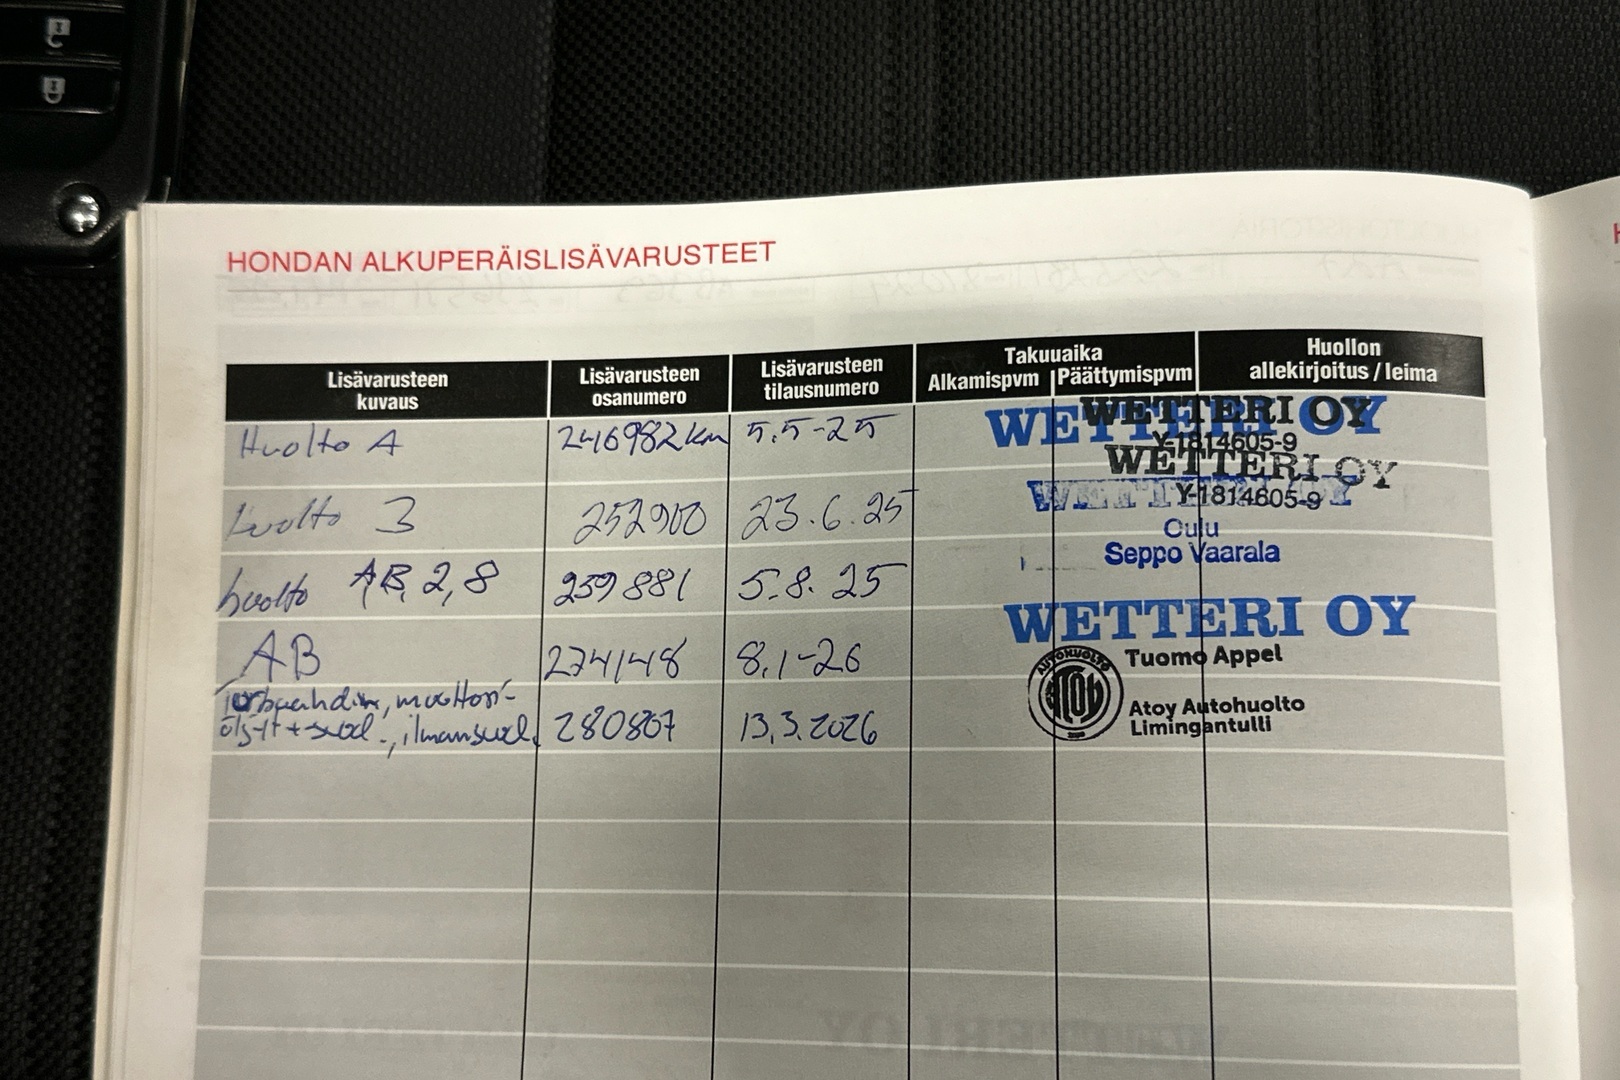 HONDAN ALKUPERÄISLISÄVARUSTEET
Lisävarusteen kuvaus
Lisävarusteen osanumero
Lisävarusteen tilausnumero
Takuuaika
Alkamispvm
Päättymispvm
Huollon allekirjoitus / leima
Huolto A 246982 km 5.5-25
WETTERI OY
WETTERI OY
Y-1814605-9
WETTERI OY
Huolto 3 252900 23.6.25
WETTERI OY
Y-1814605-9
Oulu
Seppo Vaarala
huolto AB, 2, 8 259881 5.8.25
WETTERI OY
AB 274148 8.1-26
Tuomo Appel
AUTOHUOLTO
Atoy Autohuolto
Limingantulli
moottori-
öljyt + suod., ilmansuod. 280807 13.3.2026